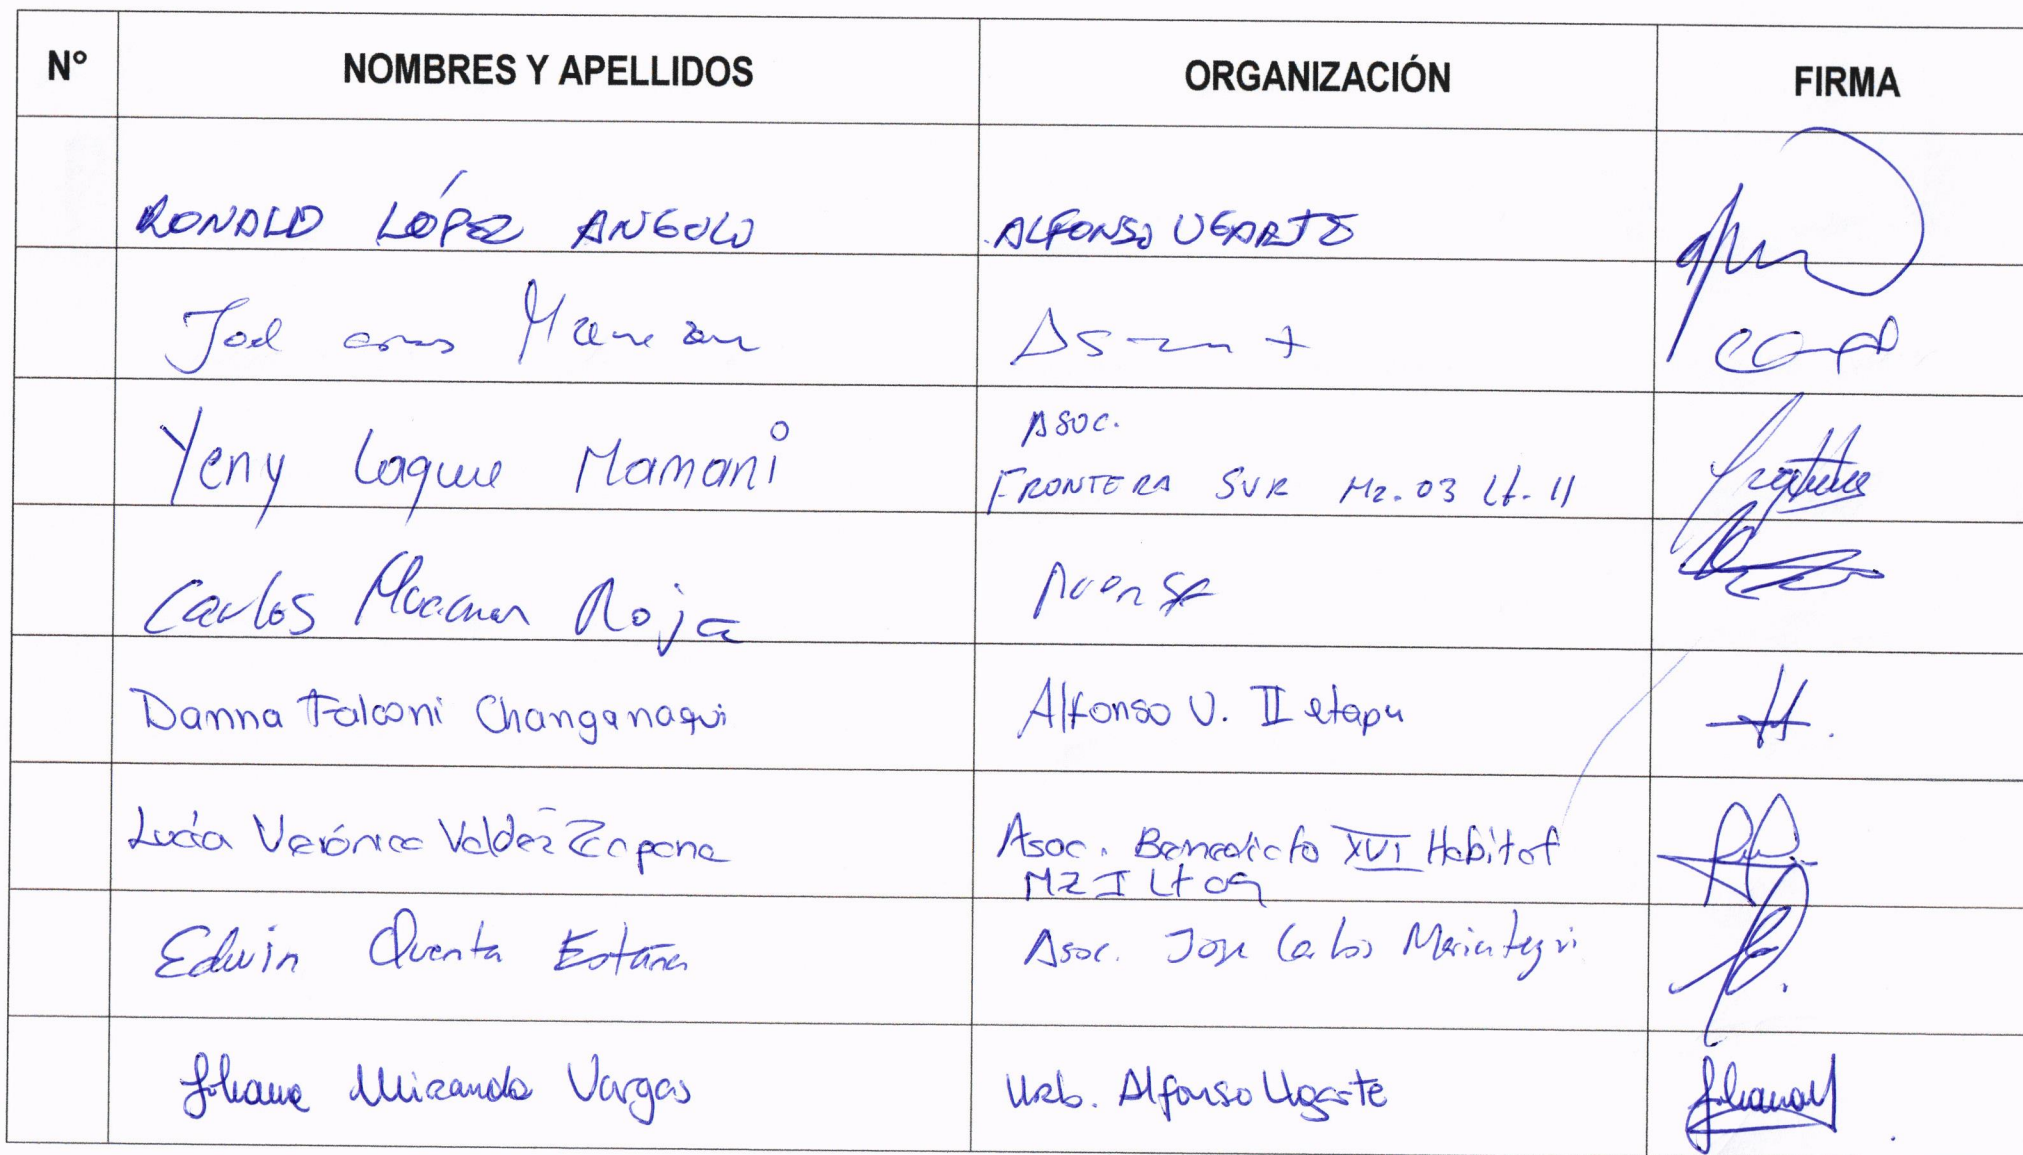 N° NOMBRES Y APELLIDOS ORGANIZACIÓN FIRMA
RONALD LÓPEZ ANGULO ALFONSO UGARTE
Joel
Yeny Laque Mamani Asoc.
FRONTERA SUR Mz. 03 Lt. 11
Carlos Roja
Danna Falconi Changanaqui Alfonso U. II etapa
Lucía Verónica Valdez Zapana Asoc. Benedicto XVI Habitat
MZ I Lt 09
Edwin Quenta Estaña Asoc. Jose Carlos Mariategui
Juliana Miranda Vargas Urb. Alfonso Ugarte